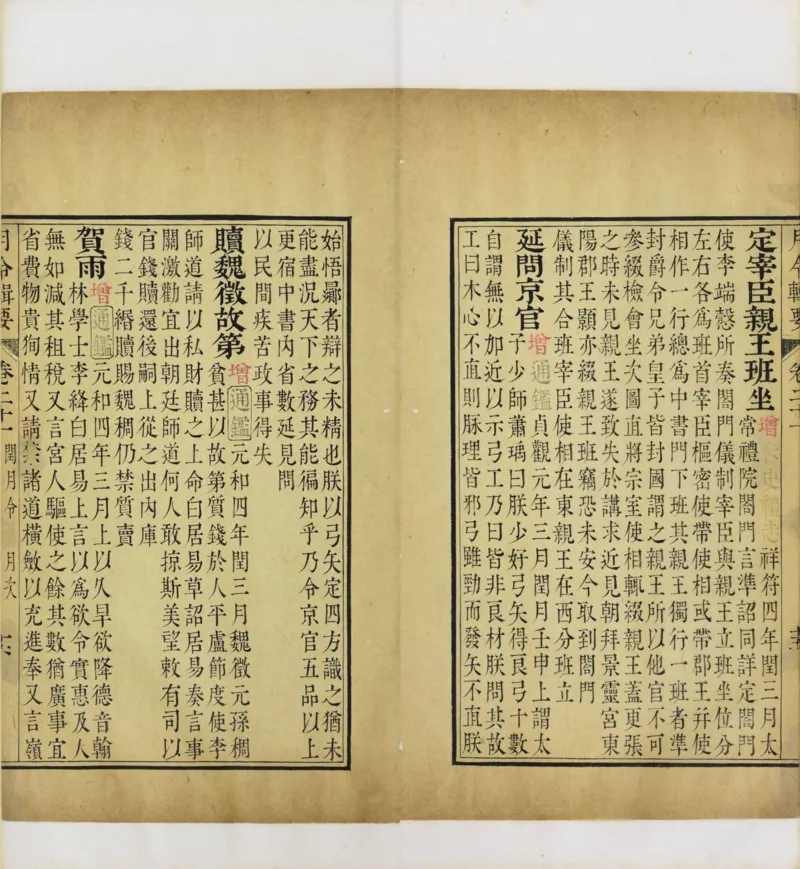 月令輯要
卷二十一
定宰臣親王班坐
增
祥符四年閏三月太
常禮院閤門言準詔同詳定閤門
使李端愨所奏閤門儀制宰臣與親王立班坐位分
左右各爲班首宰臣樞密使帶使相或帶郡王幷使
相作一行總爲中書門下班其親王獨行一班者準
封爵令兄弟皇子皆封國謂之親王所以他官不可
參綴檢會坐次圖直將宗室使相輒綴親王蓋更張
之時未見親王遂致失於講求近見朝拜景靈宮東
陽郡王顥亦綴親王班竊恐未安今取到閤門
儀制其合班宰臣使相在東親王在西分班立
延問京官
增通鑑貞觀元年三月閏月壬申上謂太
子少師蕭瑀曰朕少好弓矢得良弓十數
自謂無以加近以示弓工乃曰皆非良材朕問其故
工曰木心不直則脉理皆邪弓雖勁而發矢不直朕
始悟曏者辯之未精也朕以弓矢定四方識之猶未
能盡況天下之務其能徧知乎乃令京官五品以上
更宿中書內省數延見問
以民間疾苦政事得失
贖魏徵故第
增通鑑元和四年閏三月魏徵元孫稠
貧甚以故第質錢於人平盧節度使李
師道請以私財贖之上命白居易草詔居易奏言事
關激勸宜出朝廷師道何人敢掠斯美望敕有司以
官錢贖還後嗣上從之出內庫
錢二千緡贖賜魏稠仍禁質賣
賀雨
增通鑑元和四年三月上以久旱欲降德音翰
林學士李絳白居易上言以爲欲令實惠及人
無如減其租稅又言宮人驅使之餘其數猶廣事宜
省費物貴徇情又請禁諸道橫斂以充進奉又言嶺
月令輯要
卷二十一
閏月令
月次